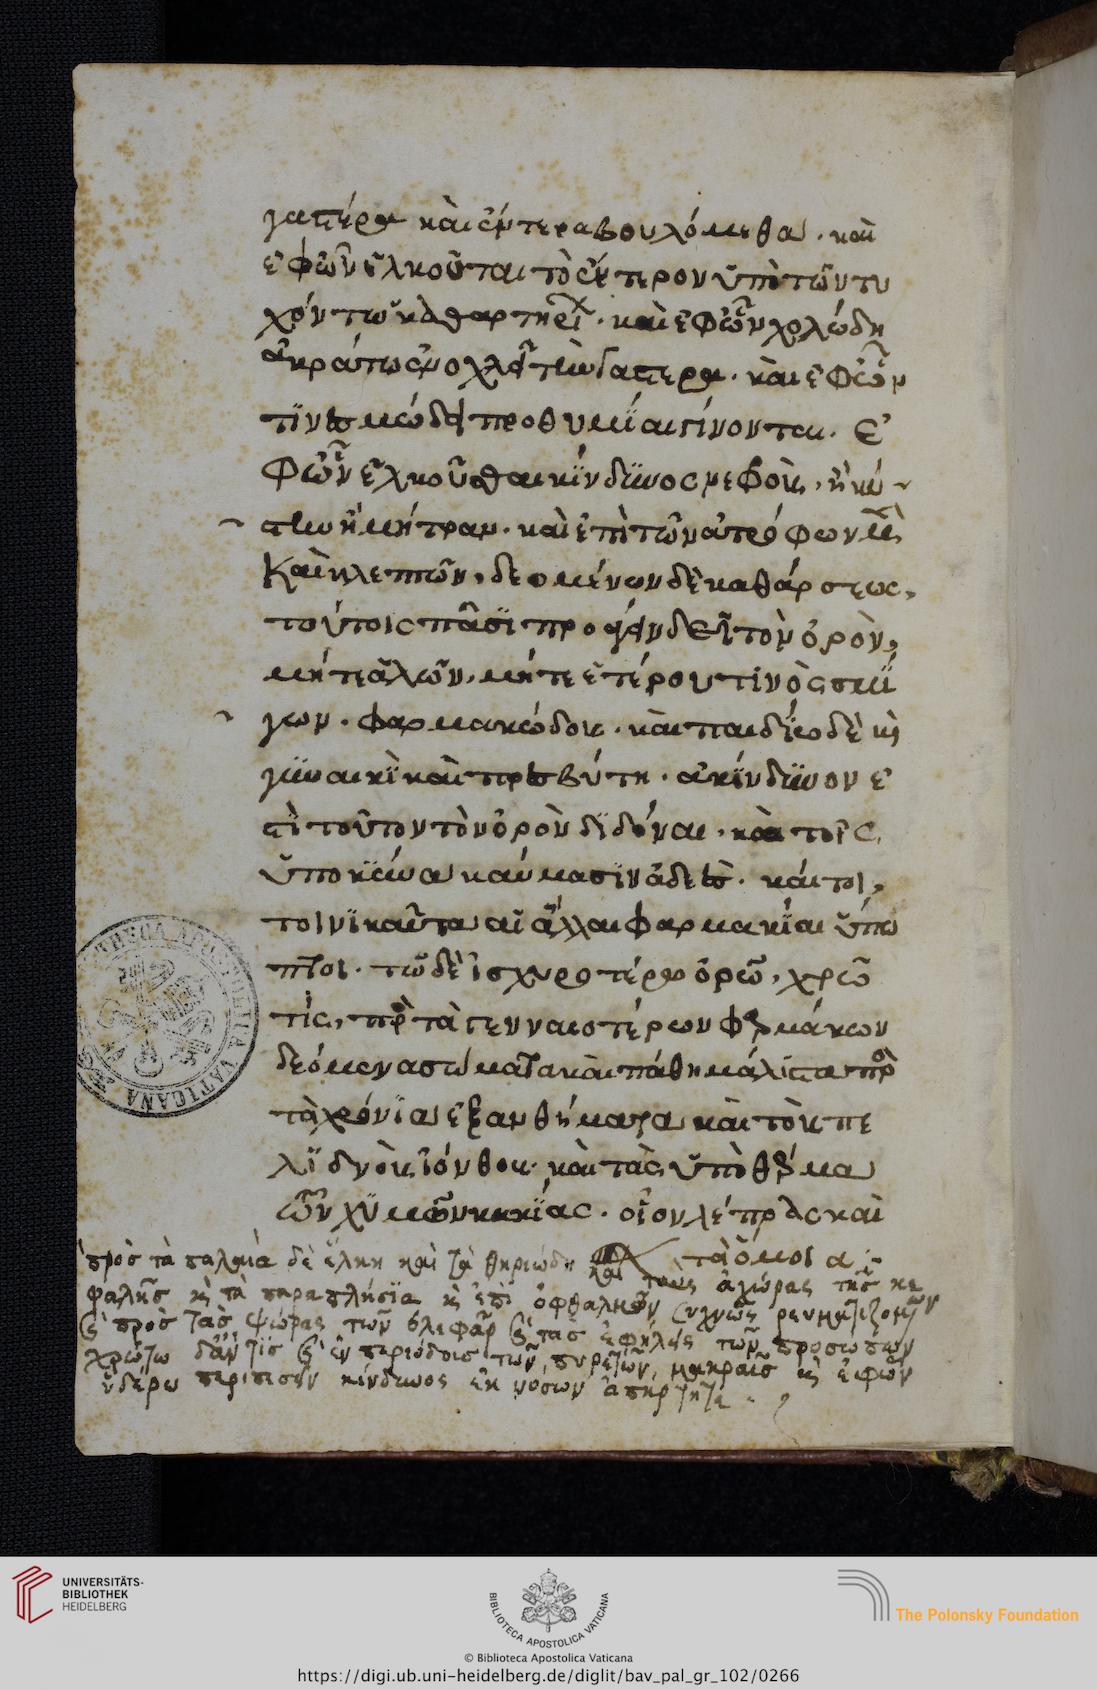 γαστέρα καὶ ἔντερα βουλόμεθα· καὶ
ἐφ' ὧν ἑλκοῦται τὸ ἔντερον ὑπὸ τῶν τυ
χόντων καθαρτηρί· καὶ ἐφ' ὧν χολώδη
ἀκράτως ἐνοχλεῖ τὴν γαστέρα· καὶ ἐφ' ὧν
τεινεσμώδει προθυμίαι γίνονται· ἐ
φ' ὧν ἑλκοῦσθαι κίνδυνος νεφροὺς, ἢ κύ
στιν ἢ μήτραν· καὶ ἐπὶ τῶν ἀτρόφων
καὶ λεπτῶν, δεομένων δὲ καθάρσεως,
τούτοις πᾶσι προσάγειν δεῖ τὸν ὀρὸν,
μήτε ἁλῶν, μήτε ἑτέρου τινὸς σμι
γων· φαρμακώδους· καὶ παιδίῳ δὲ κὶ
γυναικὶ καὶ πρεσβύτῃ· ἀκίνδυνον ἐ
στὶ τοῦτον τὸν ὀρὸν διδόναι· καὶ τοῖς
ὑπὸ κύνα καύμασιν ἀδεές· καίτοι,
τοινικαῦτα αἱ ἄλλαι φαρμακίαι ὑπό
πτοι· τῷ δὲ ἰσχυροτέρῳ ὀρῷ, χρῷ
τίς, πρὸς τὰ γενναιοτέρων φαρμάκων
δεόμενα σώματα καὶ πάθη μάλιστα πρὸς
τὰ χρόνια ἐξανθήματα καὶ τοὺς πε
λιδνοὺς ἰόνθους· καὶ τὰς ὑπὸ θερμα
ῶν χυμῶν κακίας· οἷον λέπρας καὶ
τὰ ὅμοια·:
πρὸς τὰ παλαιὰ δὲ ἕλκη καὶ τὰ θηριώδη καὶ τοὺς ἀχώρας τῆς κε
φαλῆς κὶ τὰ παραπλήσια κὶ ἐπὶ ὀφθαλμῶν συχνῶς ρευματιζομένων
κὶ πρὸς τὰς ψώρας τῶν βλεφάρ κὶ τὰς ἐφήλεις τῶν προσώπων
χρώτω δ' ἄν τις κὶ ἐν περιόδοις τῶν πυρετῶν μακραῖς κὶ ἐφ' ὧν
ὑδέρῳ περιπεσεῖν κίνδυνος ἐκ νόσων
THECA APOSTOLICA VATICANA
UNIVERSITÄTS-
BIBLIOTHEK
HEIDELBERG
BIBLIOTECA APOSTOLICA VATICANA
The Polonsky Foundation
© Biblioteca Apostolica Vaticana
https://digi.ub.uni-heidelberg.de/diglit/bav_pal_gr_102/0266